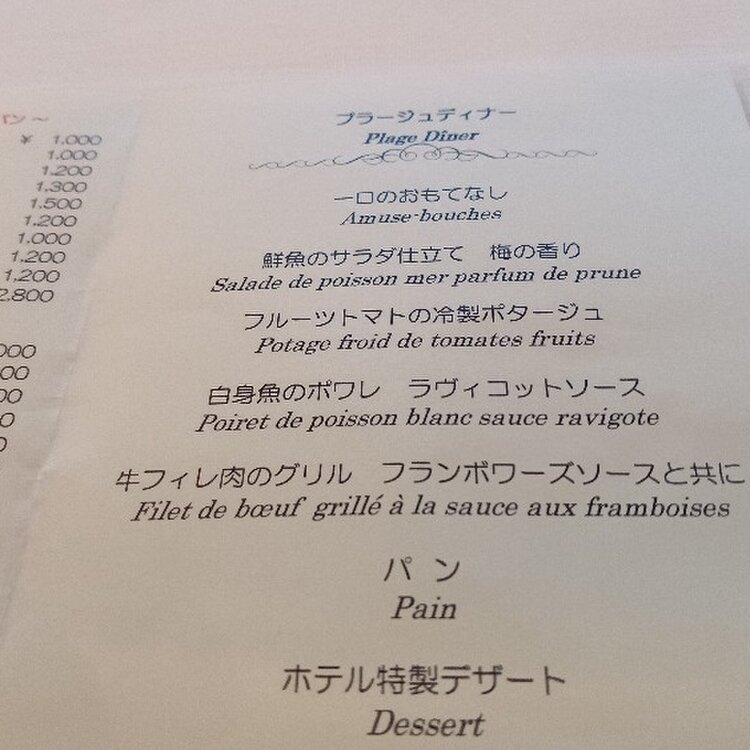 ¥ 1.000
1.000
1.200
1.300
1.500
1.200
1.000
1.200
1.200
2.800
プラージュディナー
Plage Dîner
一口のおもてなし
Amuse-bouches
鮮魚のサラダ仕立て 梅の香り
Salade de poisson mer parfum de prune
フルーツトマトの冷製ポタージュ
Potage froid de tomates fruits
白身魚のポワレ ラヴィコットソース
Poiret de poisson blanc sauce ravigote
牛フィレ肉のグリル フランボワーズソースと共に
Filet de bœuf grillé à la sauce aux framboises
パン
Pain
ホテル特製デザート
Dessert